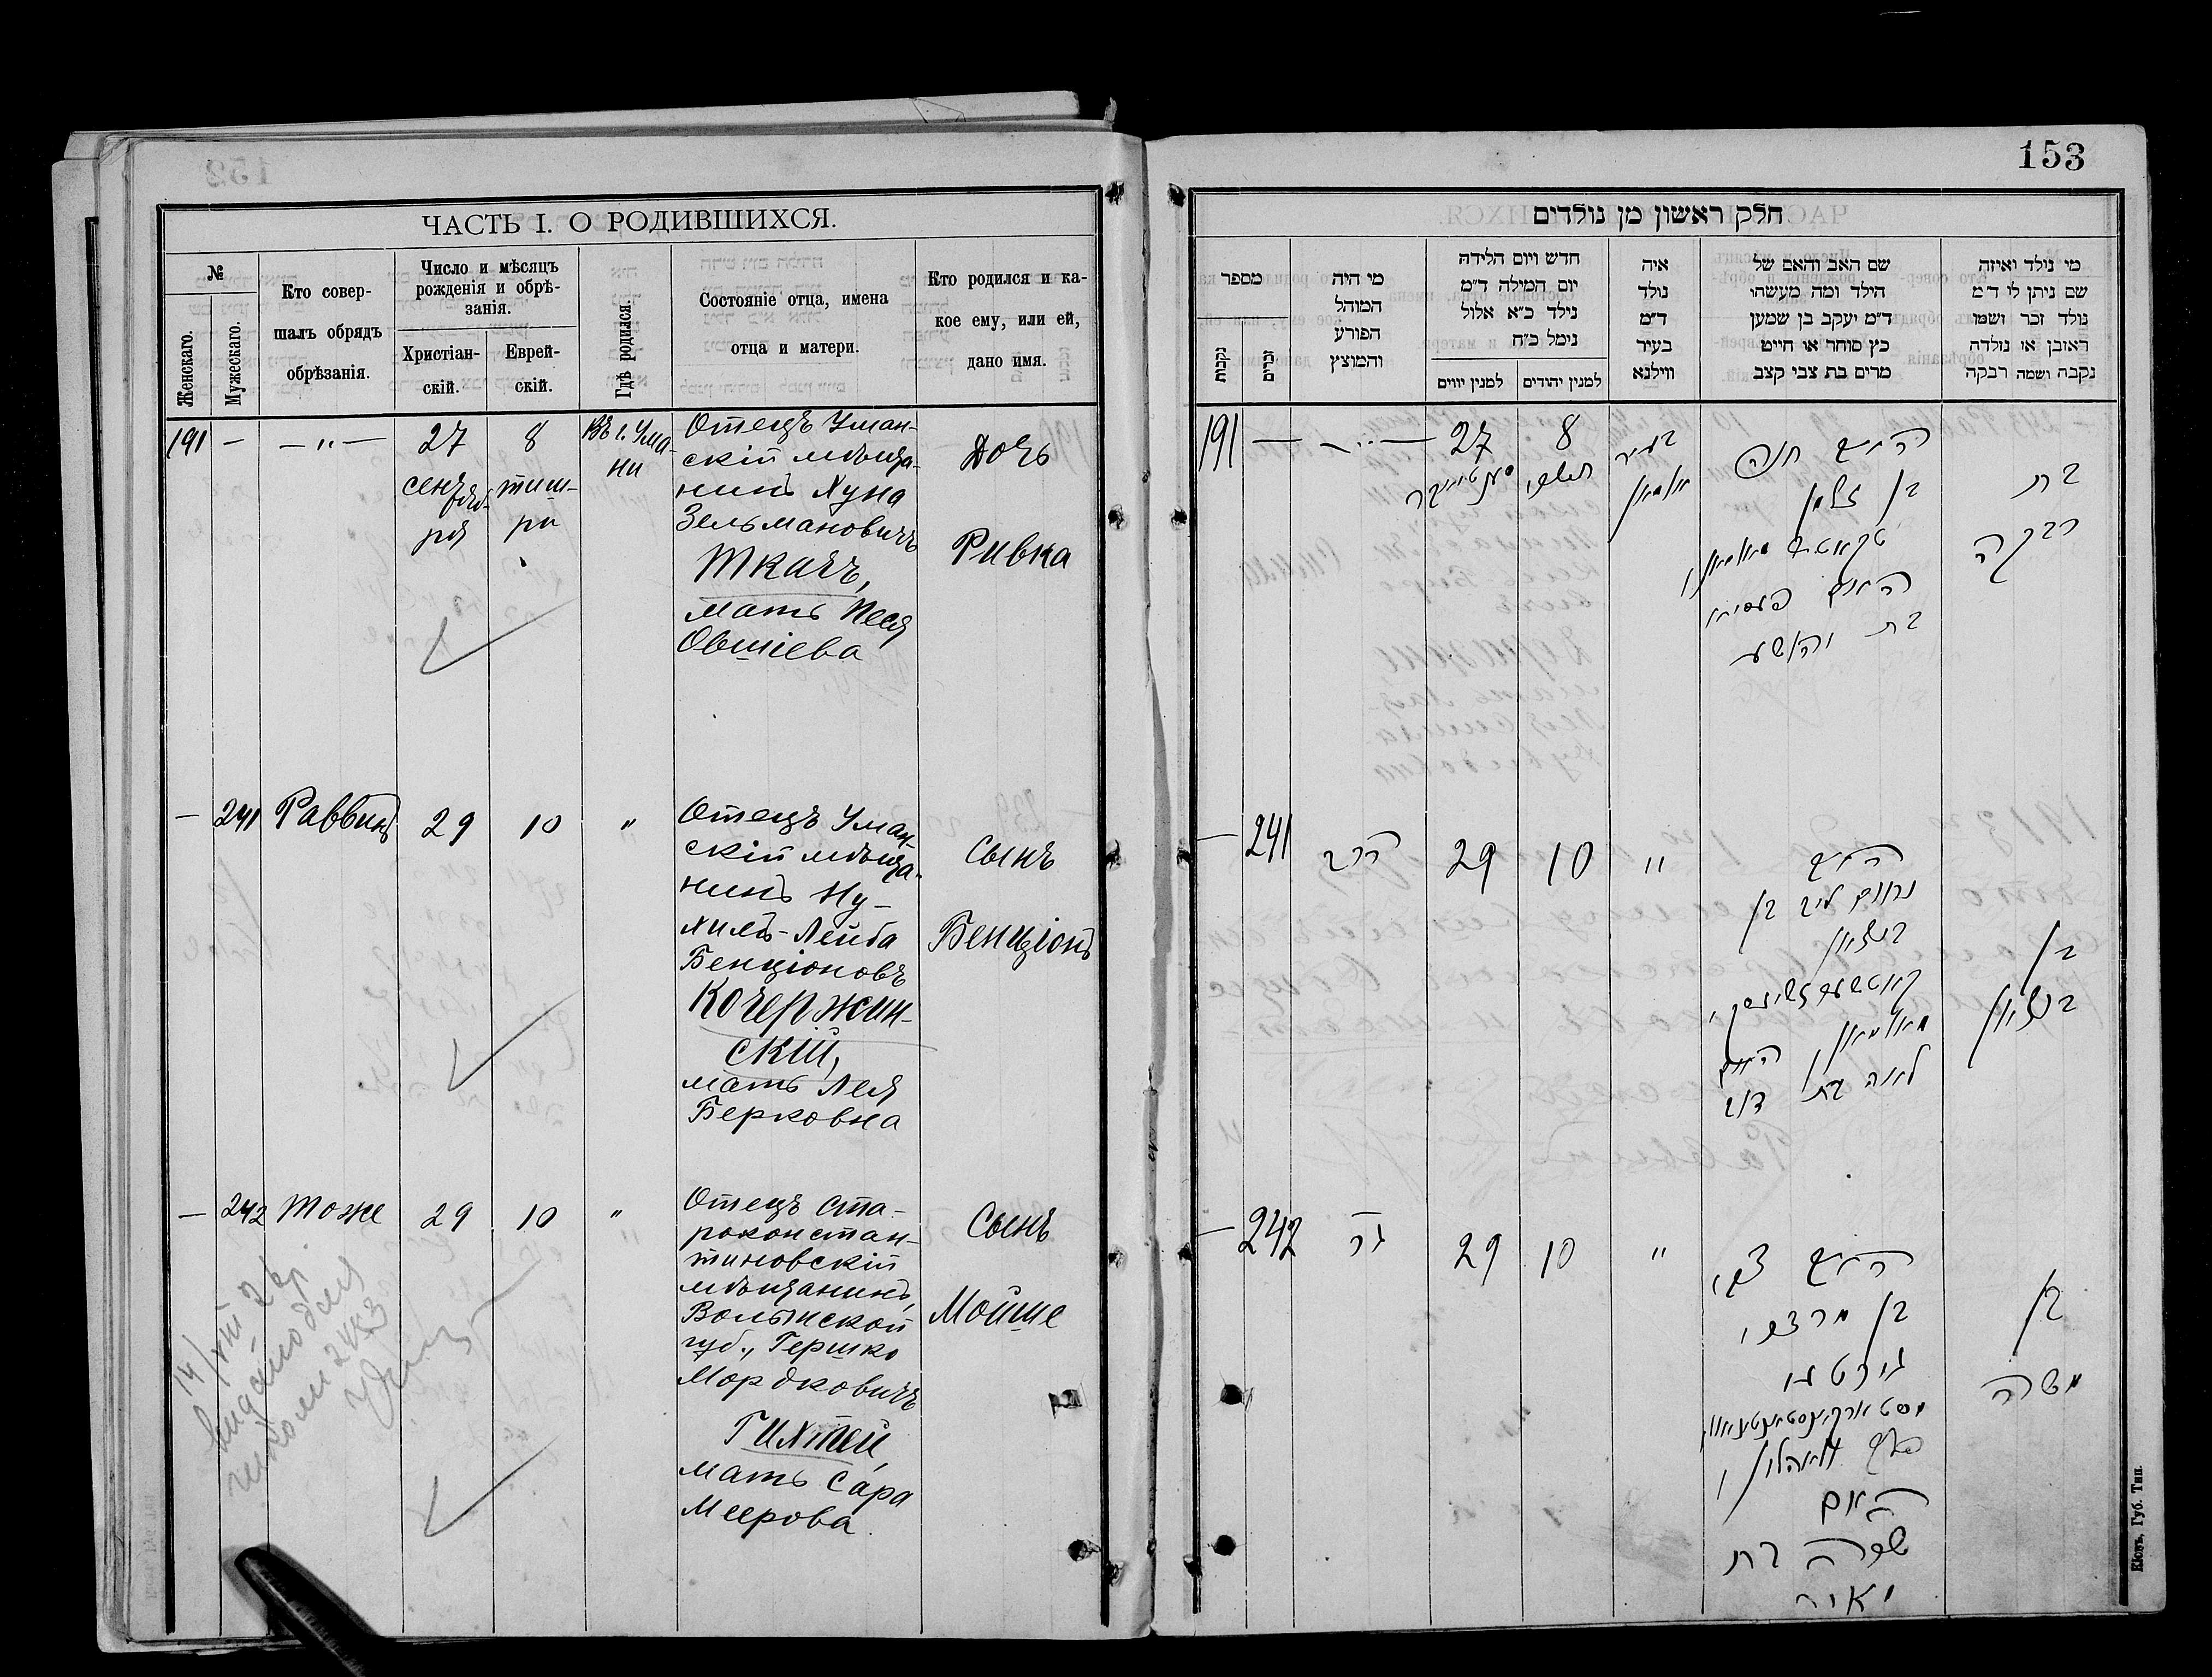 153
ЧАСТЬ I. О РОДИВШИХСЯ.
№
Женскаго.
Мужескаго.
Кто совер-
шалъ обрядъ
обрѣзанія.
Число и мѣсяцъ
рожденія и обрѣ-
занія.
Христіан-
скій.
Еврей-
скій.
Гдѣ родился.
Состояніе отца, имена
отца и матери.
Кто родился и ка-
кое ему, или ей,
дано имя.
191 — — " — 27 8 Въ г. Ума-
ни
сентяб-
ря
тиш-
ри
Отецъ Уман-
скій мѣща-
нинъ Хуна
Зельмановичъ
Ткачъ,
мать Песя
Овшіева
Дочь
Ривка
— 241 Раввинъ 29 10 "
Отецъ Уман-
скій мѣща-
нинъ Ну-
химъ-Лейба
Бенціоновъ
Кочержин-
скій,
мать Лея
Берковна
Сынъ
Бенціонъ
— 242 Тоже 29 10 "
Отецъ Ста-
роконстан-
тиновскій
мѣщанинъ,
Волынской
губ., Гершко
Мордковичъ
Гихтей,
мать Сара
Меерова.
Сынъ
Мойше
חלק ראשון מן נולדים
מספר
נקבות
זכרים
מי היה
המוהל
הפורע
והמוצץ
חדש ויום הלידה
יום המילה ד״מ
נילד כ״א אלול
נימל כ״ח
למנין יווים
למנין יהודים
איה
נולד
ד״מ
בעיר
ווילנא
שם האב והאם של
הילד ומה מעשהו
ד״מ יעקב בן שמען
כץ סוחר או חייט
מרים בת צבי קצב
מי נולד ואיזה
שם ניתן לו ד״מ
נולד זכר ושמו
ראובן או נולדה
נקבה ושמה רבקה
191 — — " — 27 8
תשרי
בעיר
אומאן
האב חנה
בן זלמן
בת
רבקה
האם
בת יהושע
— 241 הרב 29 10 "
האב
נחום ליב בן
בנציון
האם
לאה בת דוב
בן
בנציון
— 242 29 10 "
האב צבי
בן מרדכי
האם
שרה בת
מאיר
בן
משה
Кіевъ, Губ. Тип.